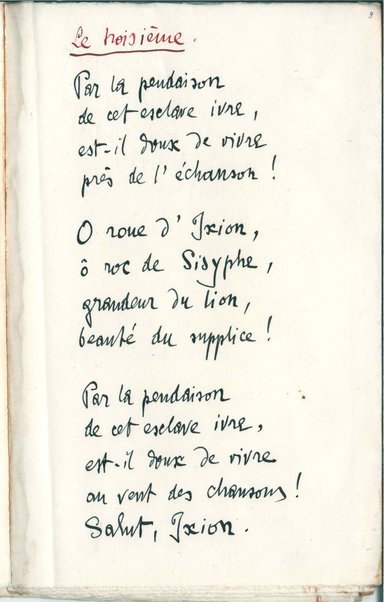 3
Le troisième.
Par la pendaison
de cet esclave ivre,
est-il doux de vivre
près de l'échanson !
O roue d'Ixion,
ô roc de Sisyphe,
grandeur du lion,
beauté du supplice !
Par la pendaison
de cet esclave ivre,
est-il doux de vivre
au vent des chansons !
Salut, Ixion.